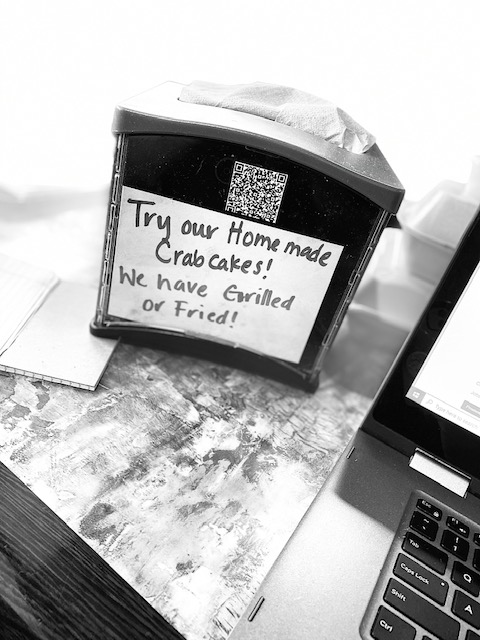 Try our Home made
Crab cakes!
We have Grilled
or Fried!
Esc
Tab
Caps Lock
Shift
Ctrl
Q
A